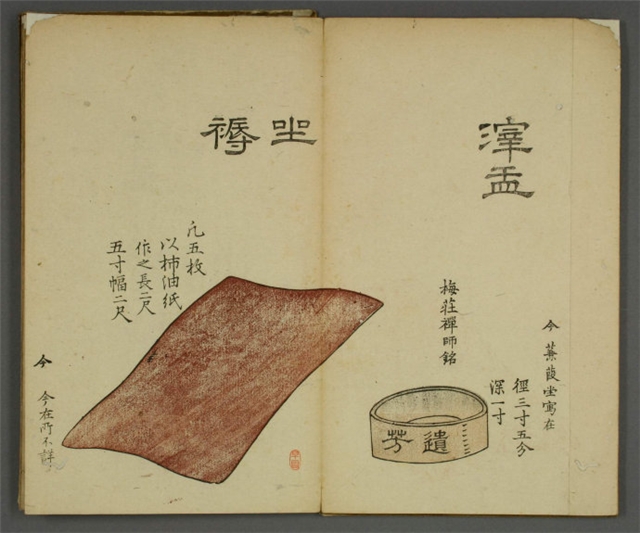 滓盂
今 蒹葭堂寓在
徑三寸五分
深一寸
梅莊禪師銘
遺芳
坐褥
凡五枚
以柿油紙
作之長二尺
五寸幅二尺
今 今在所不詳